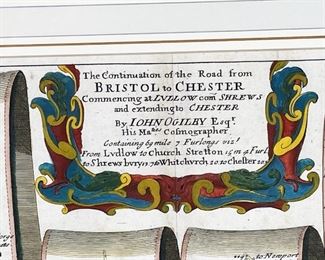 The Continuation of the Road from
BRISTOL to CHESTER
Commencing at LVDLOW com SHREWS
and extending to CHESTER
By IOHN OGILBY Esqr.
His Maties Cosmographer
Containing 67 mile 7 Furlongs viz!
From Lvdlow to Church Stretton 15 m 4 Furl
to Shrewsbvry 1276 Whitchvrch 20.10 Chester 20
to Newport